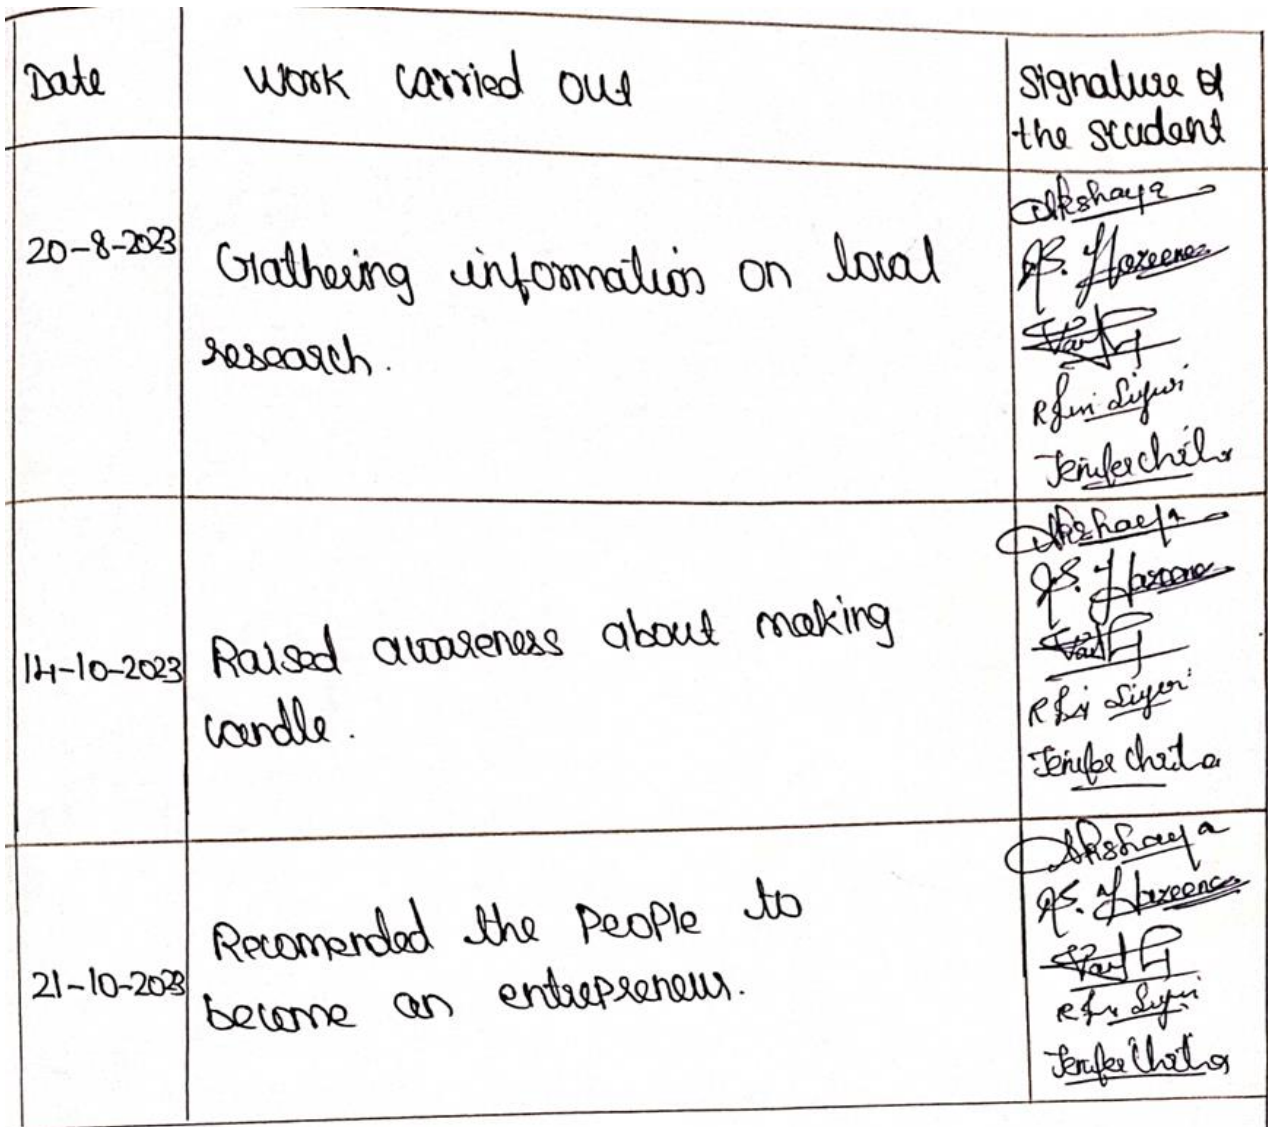 Date
Work carried out
Signature of
the student
20-8-2023
Gathering information on local
research.
Akshaya
S. Hazeena
R
Jenifer Chitra
14-10-2023
Raised awareness about making
candle.
Akshaya
S. Hazeena
R
Jenifer Chitra
21-10-2023
Recomended the People to
become an entrepreneur.
Akshaya
S. Hazeena
R
Jenifer Chitra